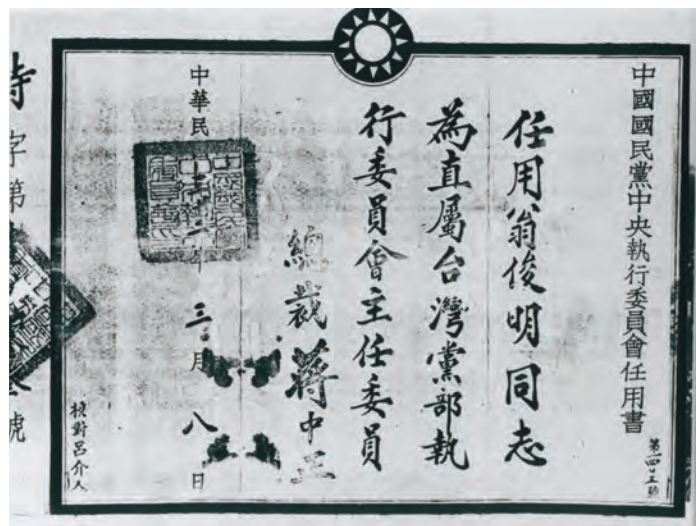 中國國民黨中央執行委員會任用書
第一四七五號
任用翁俊明同志
為直屬台灣黨部執
行委員會主任委員
總裁 蔣中正
中華民 年 三月 八 日
校對呂介人
字第 號